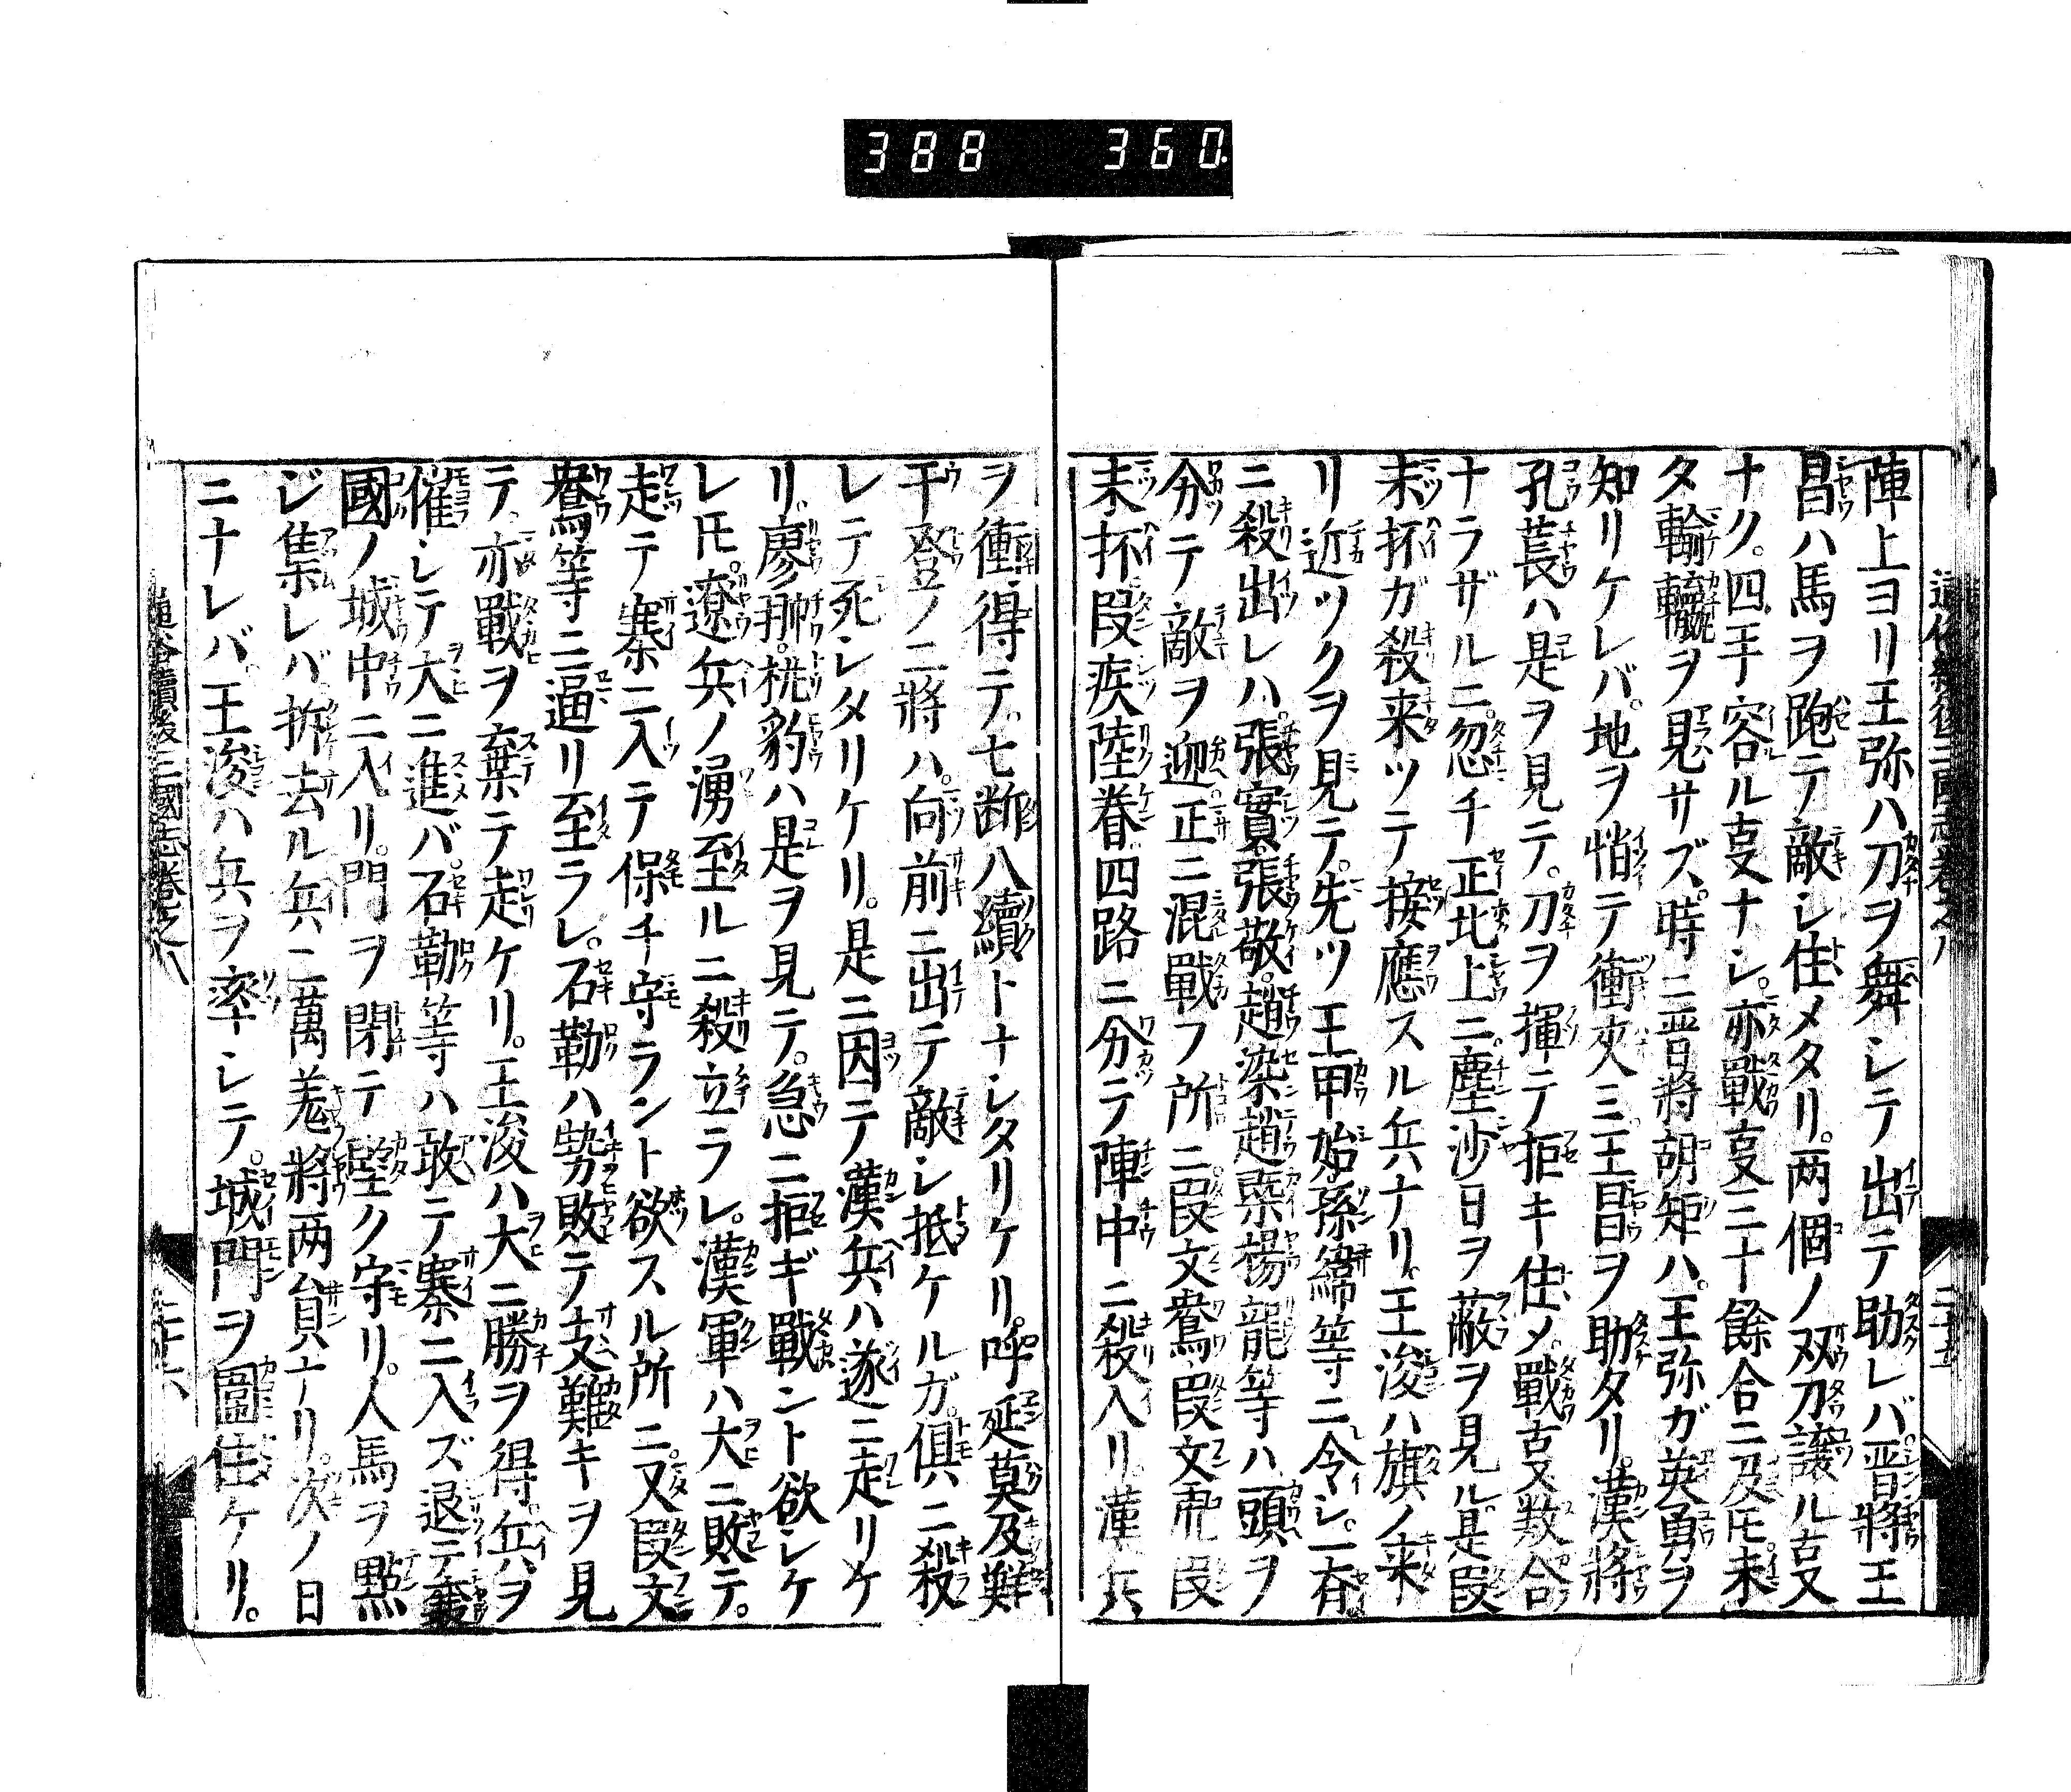 388 360
通俗續後三國志卷之八
二十五
陣上ヨリ王弥ハ刀ヲ舞シテ出テ助レバ晋將王
昌ハ馬ヲ跑テ敵シ住メタリ。两個ノ双刀譲ル㕝
ナク。四手容ル㕝ナシ。亦戰㕝三十餘合ニ及𪜈未
タ輸贏ヲ見サズ。時ニ晋將胡矩ハ。王弥ガ英勇ヲ
知リケレバ。地ヲ悄テ衝夾ミ王昌ヲ助タリ。漢將
孔萇ハ是ヲ見テ。刀ヲ揮テ拒キ住メ。戰㕝数合
ナラザルニ。忽チ正北上ニ塵沙日ヲ蔽ヲ見ル。是段
末杯ガ殺来ツテ接應スル兵ナリ。王浚ハ旗ノ来
リ近ツクヲ見テ。先ツ王甲始孫緯等ニ令シ。一斉
ニ殺出レハ。張實張敬。趙染趙槩楊龍等ハ頭ヲ
分テ敵ヲ迎。正ニ混戰フ所ニ。段文鴦。段文虎段
末杯段疾陸眷四路ニ分テ陣中ニ殺入リ。漢兵
ヲ衝得テ。七断八續トナシタリケリ。呼延莫及難
干登ノ二將ハ。向前ニ出テ敵シ抵ケルガ。俱ニ殺
レテ死シタリケリ。是ニ因テ漢兵ハ遂ニ走リケ
リ。廖翀。桃豹ハ是ヲ見テ。急ニ拒ギ戰ント欲シケ
レ𪜈。遼兵ノ湧至ルニ殺立ラレ。漢軍ハ大ニ敗テ。
走テ寨ニ入テ保チ守ラント欲スル所ニ。又段文
鴦等ニ逼リ至ラレ。石勒ハ勢敗テ支難キヲ見
テ。亦戰ヲ棄テ走ケリ。王浚ハ大ニ勝ヲ得。兵ヲ
催シテ大ニ進バ。石勒等ハ敢テ寨ニ入ズ退テ襄
國ノ城中ニ入リ。門ヲ閉テ堅ク守リ。人馬ヲ點
ジ集レバ拆去ル兵二萬羗將两員ナリ。次ノ日
ニナレバ。王浚ハ兵ヲ率シテ。城門ヲ圖住ケリ。
通俗續後三國志卷之八
二十六